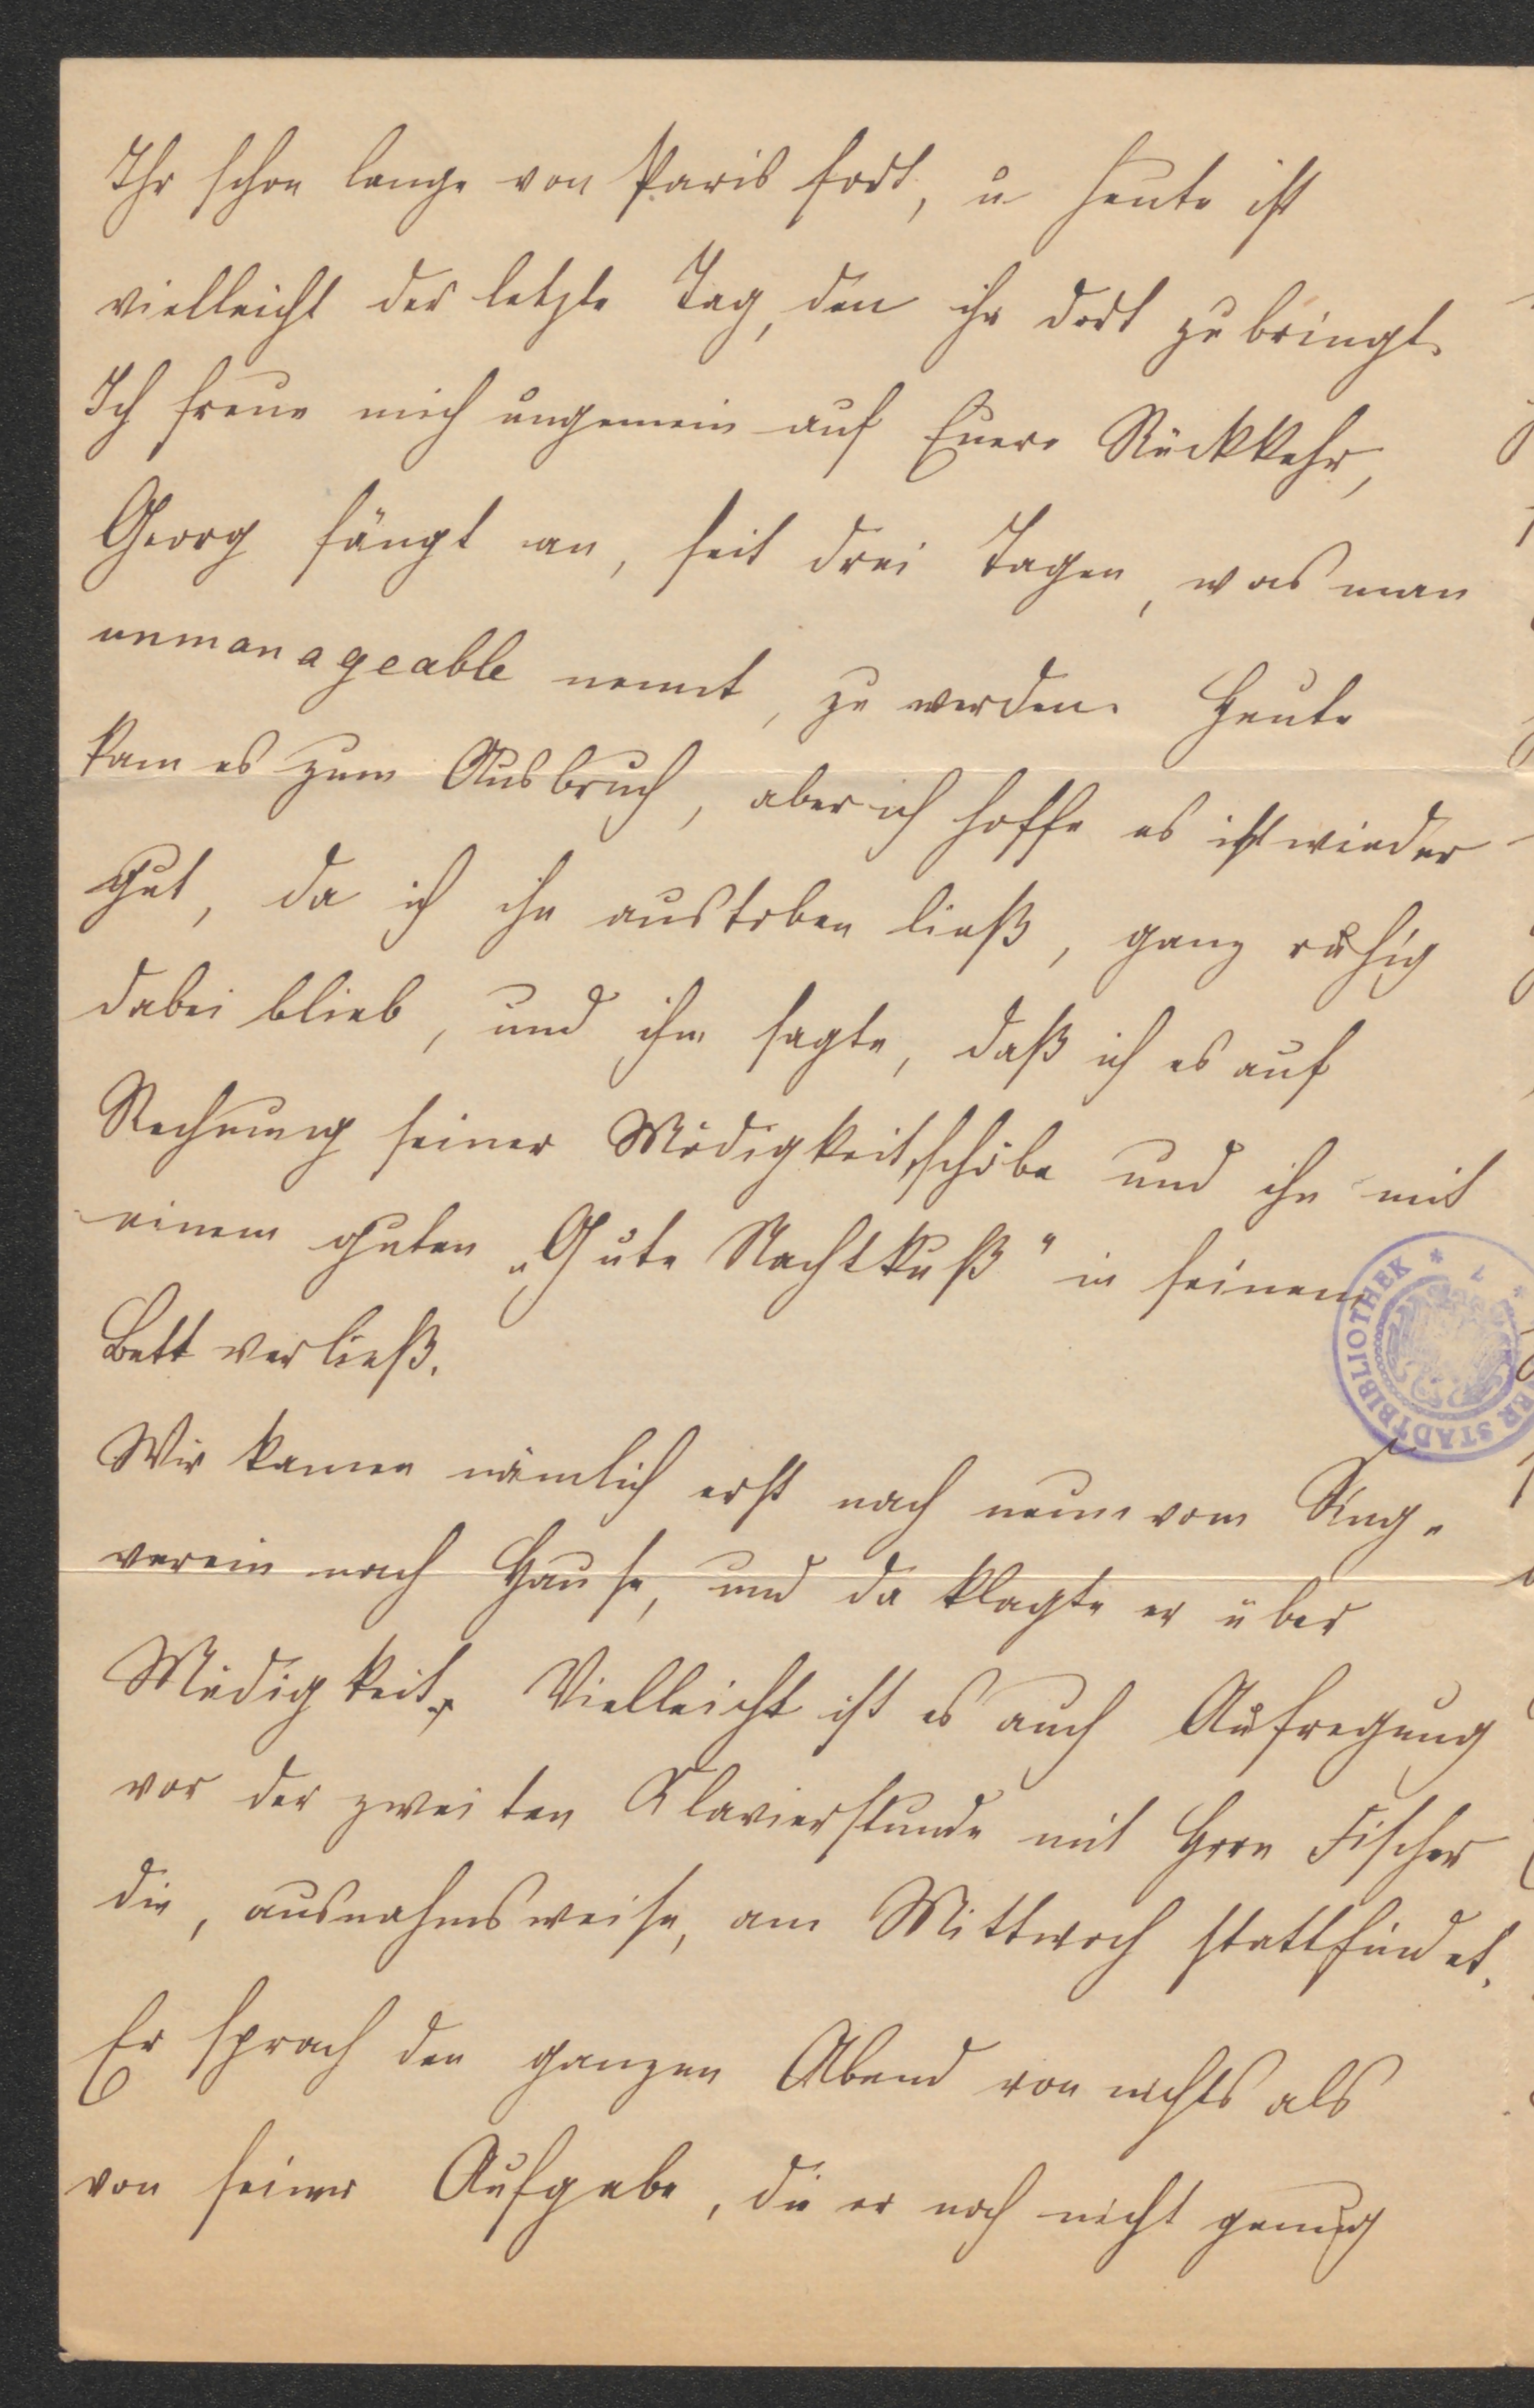 Ihr schon lange von Paris fort, u heute ist
vielleicht der letzte Tag, den ihr dort zu bringt.
Ich freue mich ungemein auf Euere Rückkehr,
Georg fängt an, seit drei Tagen, was man
unmanageable nennt, zu werden. Heute
kam es zum Ausbruch, aber ich hoffe es ist wieder
gut, da ich ihn austoben ließ, ganz ruhig
dabei blieb, und ihm sagte, daß ich es auf
Rechnung seiner Müdigkeit schöbe und ihn mit
einem guten „Gute Nachtkuß" in seinem
Bett verließ.
Wir kamen nämlich erst nach neun vom Sing-
verein nach Hause, und da klagte er über
Müdigkeit. Vielleicht ist es auch Aufregung
vor der zweiten Klavierstunde mit Herrn Fischer
die, ausnahmsweise, am Mittwoch stattfindet.
Er sprach den ganzen Abend von nichts als
von seiner Aufgabe, die er noch nicht genug
BIBLIOTHEK * 7 *
ER STADT